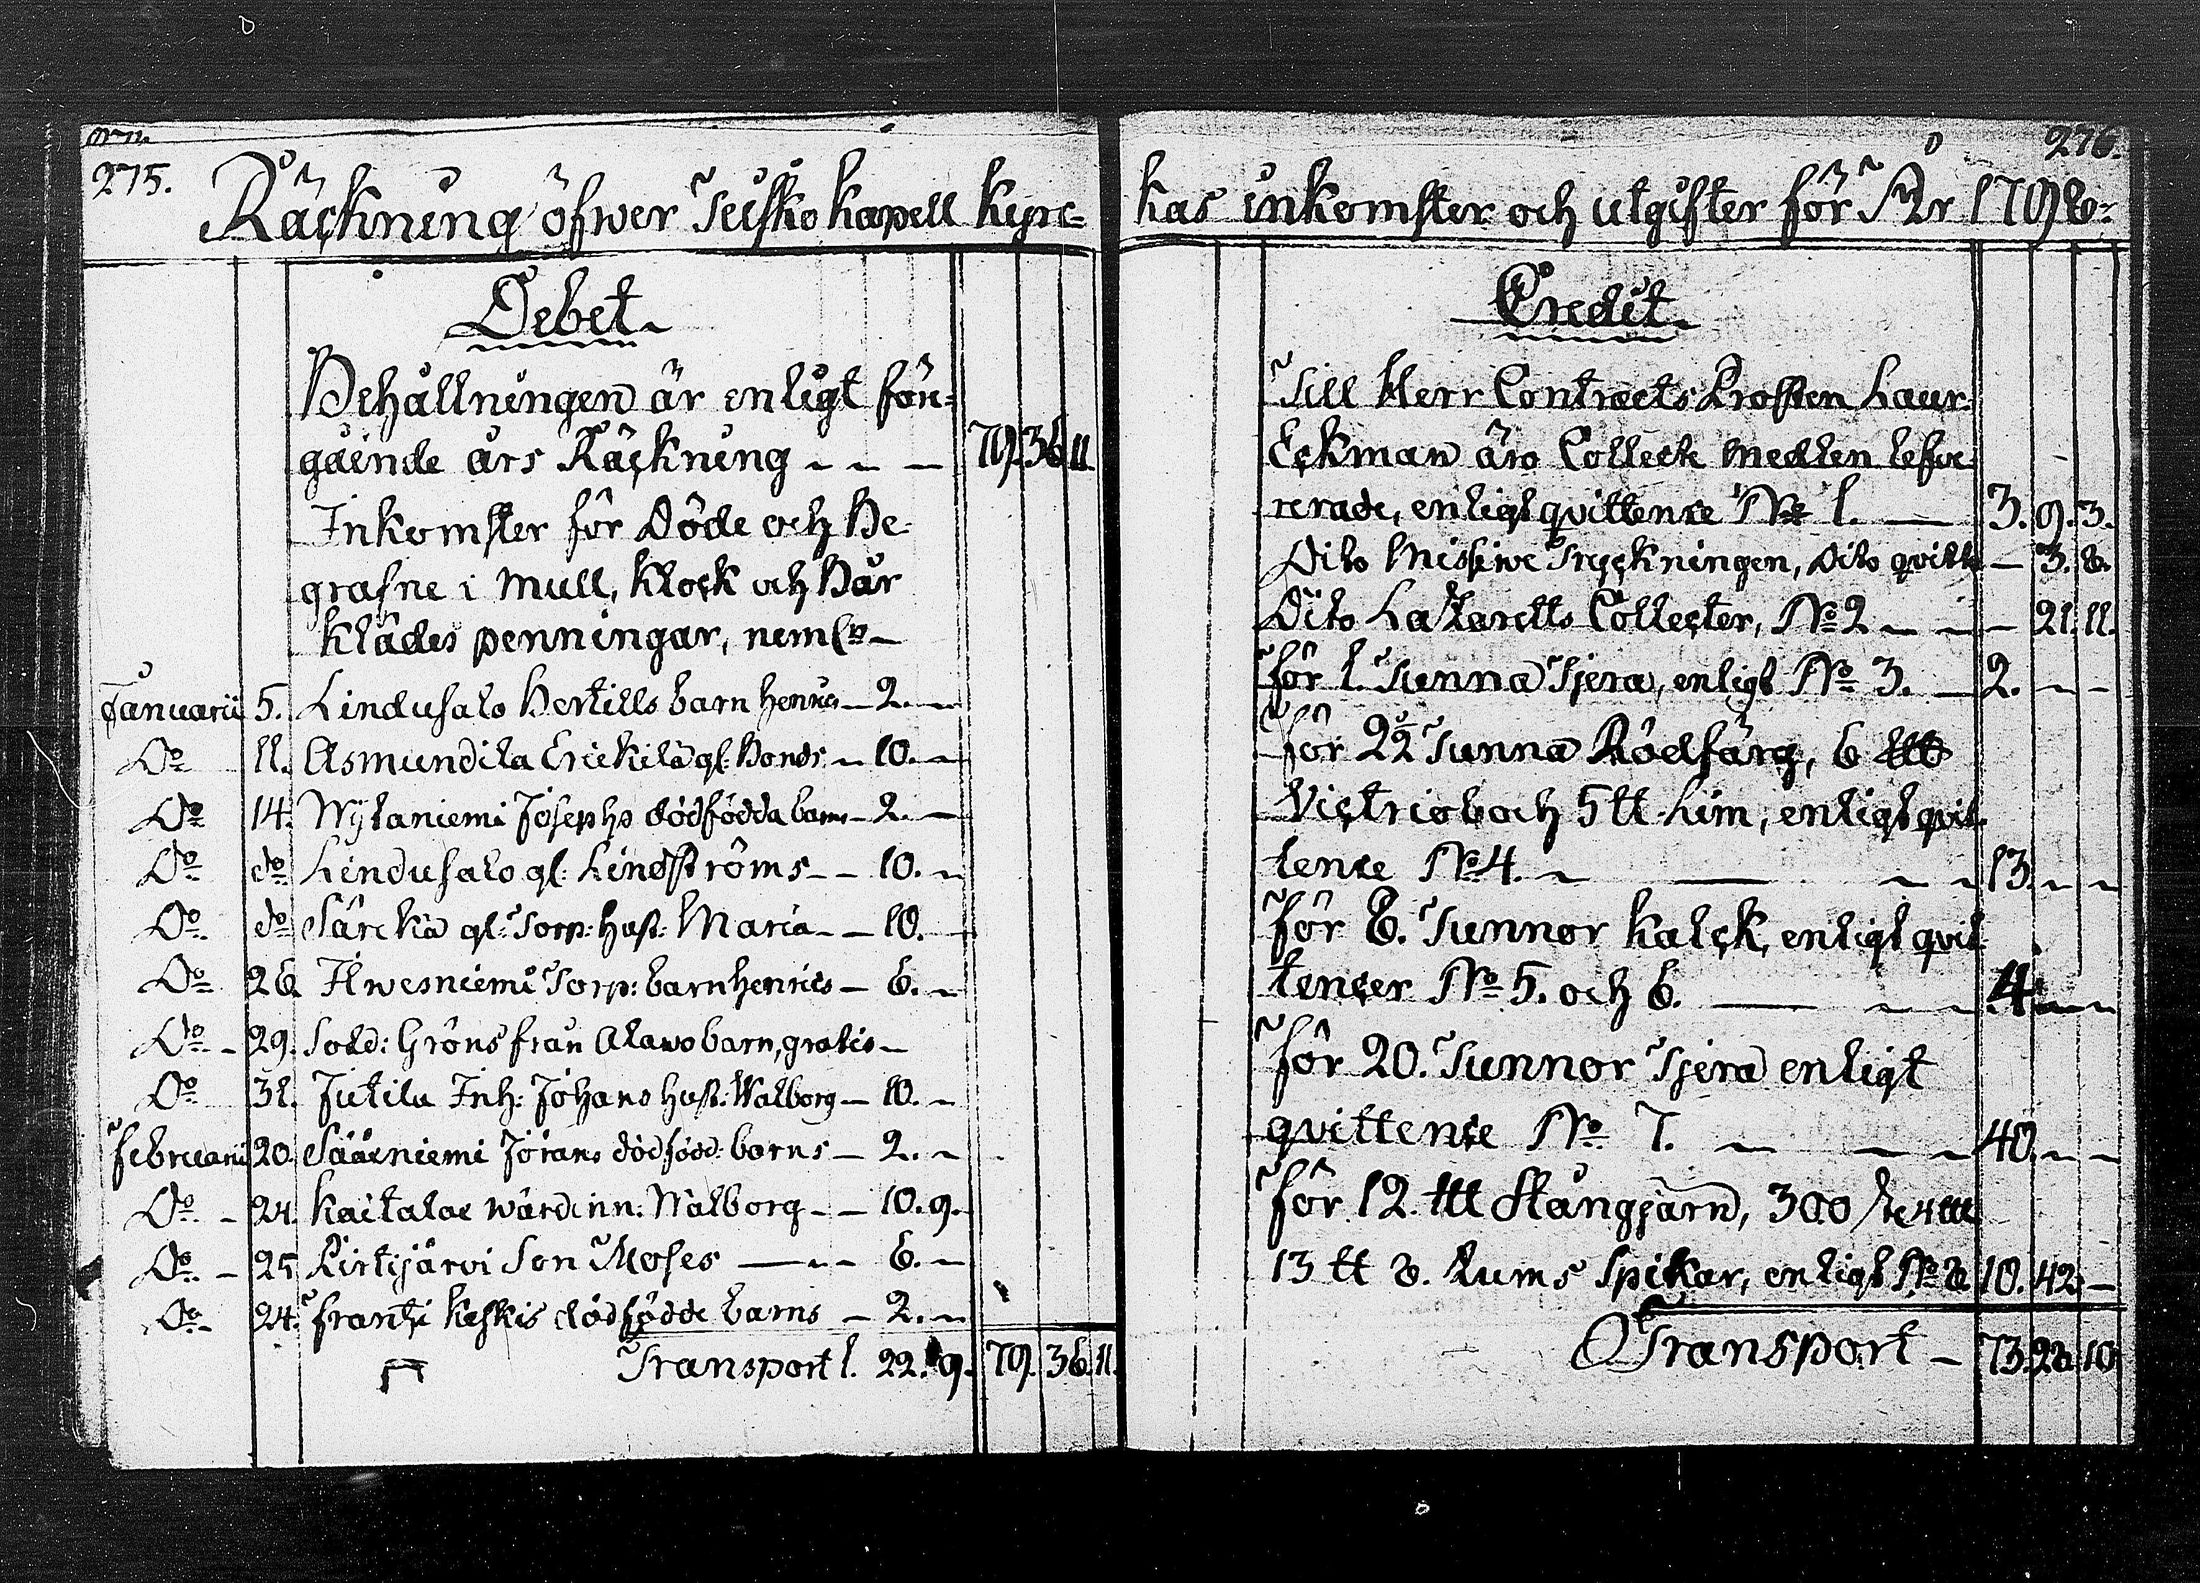 275.
Räckning öfwer Teisko kapell kyrc=
Debet
Behållningen är enligt för=
gående års Räckning - - - 79. 36 11
Inkomster för Döde och Be=
grafne i mull, klock och Bår
klädes penningar, neml:n
Januarii 5. Lindusalo Bertills barn henric - 2. -
Do 11. Asmundila Erickilä gl: Bonds - 10. -
Do 14. Wijtaniemi Josephs dödfödda barn - 2. -
Do do Lindusalo gl: Lindströms - - 10. -
Do. do Särckiä gl: Torp: Hust: Maria - - 10. -
Do 26 Ilwesniemi Torp: barn henrics - 6. -
Do. - 29. Sold: Gröns från Alawo barn, gratis -
Do 31. Jutila Inh: Johans Hust: Walborg - 10. -
Februarii 20. Sääxniemi Jörans dödfödd: barns - 2. -
Do. - 24. Kaitalae wärdinn: Walborg - - 10. 9.
Do. - 25 Listijärvi Son Moses - - - 6. -
Do. 24. Frantzi Keskis dödfödde barns - 2. -
Transport 1. 22. 9. 79. 36. 11.
276.
kas inkomster och utgifter för År 1798.
Credit
Till Herr Contracts Prosten Laur:
Eckman äro Collect medlen lefwe=
rerade, enligt qvittence No 1. - 3. 9. 3.
Dito Missive Tryckningen, Dito qvitt - 3. 8.
Dito Lazaretts Collecter, No 2 - - - 21. 11.
för 1. Tunna Tjera, enligt No 3. - 2. - -
för 2½ Tunna Rödfärg, 6 ttt
Victriol och 5 tt Lim, enligt qvit
tence No 4. - - - - 13. - -
För 8. Tunnor kalck, enligt qvit
tencer No 5. och 6. - - - 4. - -
För 20. Tunnor Tjera enligt
qvittence No 7. - - - 40. - -
För 12. ttt Stångjärn, 300
13 tt 8. tums Spikar, enligt No 8 10. 42 -
Transport - 73. 28. 10